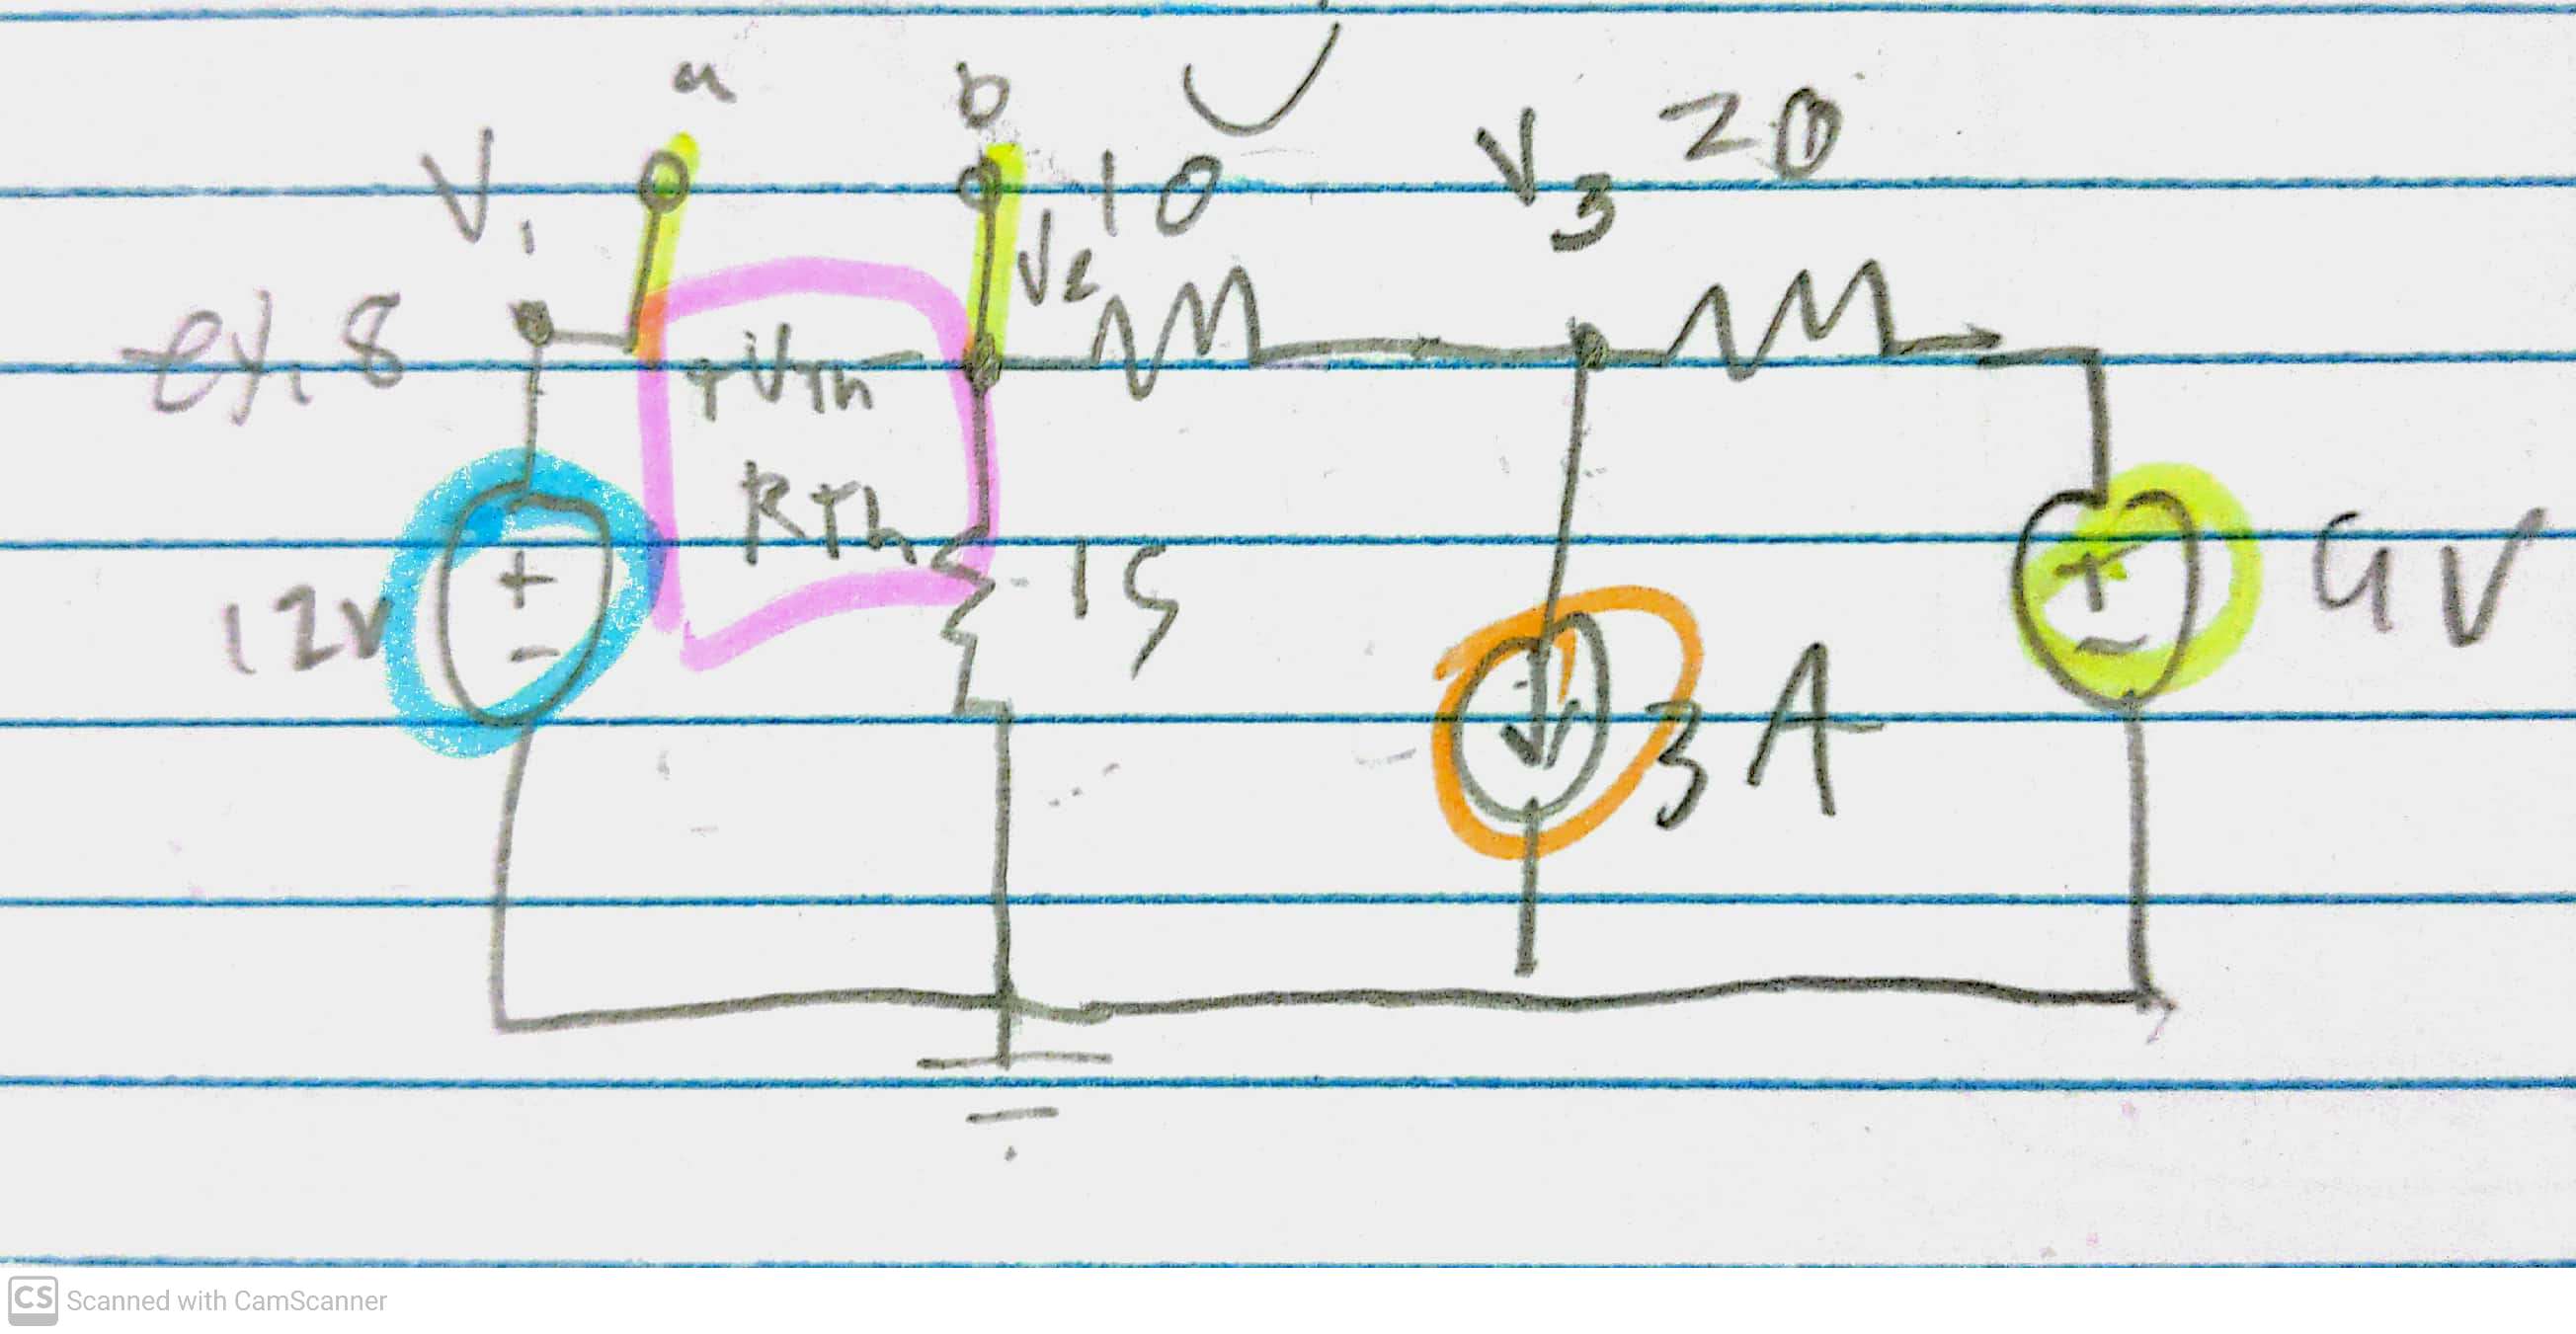 a b
V1 V2 10 V3 20
ex. 8
+ VTh -
RTh
15
12V + -
3A
+ - 4V
CS Scanned with CamScanner